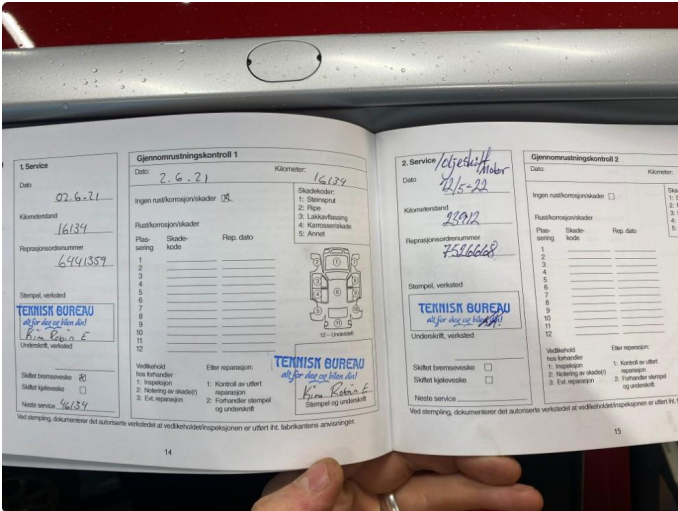 1. Service
Dato
02.6.21
Kilometerstand
16134
Reprasjonsordrenummer
6441359
Stempel, verksted
TEKNISK BUREAU
alt for deg og bilen din!
Kim Robin E
Underskrift, verksted
Skiftet bremseveske
Skiftet kjøleveske
Neste service 46134
Gjennomrustningskontroll 1
Dato: 2.6.21
Kilometer: 16134
Ingen rust/korrosjon/skader
Rust/korrosjon/skader
Plas-
sering
Skade-
kode
Rep. dato
1
2
3
4
5
6
7
8
9
10
11
12
Skadekoder:
1: Steinsprut
2: Ripe
3: Lakkavflassing
4: Karosseriskade
5: Annet
12 – Understell
Vedlikehold
hos forhandler
1: Inspeksjon
2: Notering av skade(r)
3: Evt. reparasjon
Etter reparasjon:
1: Kontroll av utført
reparasjon
2: Forhandler stempel
og underskrift
TEKNISK BUREAU
alt for deg og bilen din!
Kim Robin E
Stempel og underskrift
Ved stempling, dokumenterer det autoriserte verkstedet at vedlikeholdet/inspeksjonen er utført iht. fabrikantens anvisninger.
14
2. Service/oljeskift
Motor
Dato
12/5-22
Kilometerstand
23912
Reprasjonsordrenummer
7526668
Stempel, verksted
TEKNISK BUREAU
alt for deg og bilen din!
Underskrift, verksted
Skiftet bremseveske
Skiftet kjøleveske
Neste service
Gjennomrustningskontroll 2
Dato:
Kilometer:
Ingen rust/korrosjon/skader
Rust/korrosjon/skader
Plas-
sering
Skade-
kode
Rep. dato
1
2
3
4
5
6
7
8
9
10
11
12
Vedlikehold
hos forhandler
1: Inspeksjon
2: Notering av skade(r)
3: Evt. reparasjon
Etter reparasjon:
1: Kontroll av utført
reparasjon
2: Forhandler stempel
og underskrift
Ved stempling, dokumenterer det autoriserte verkstedet at vedlikeholdet/inspeksjonen er utført iht.
15